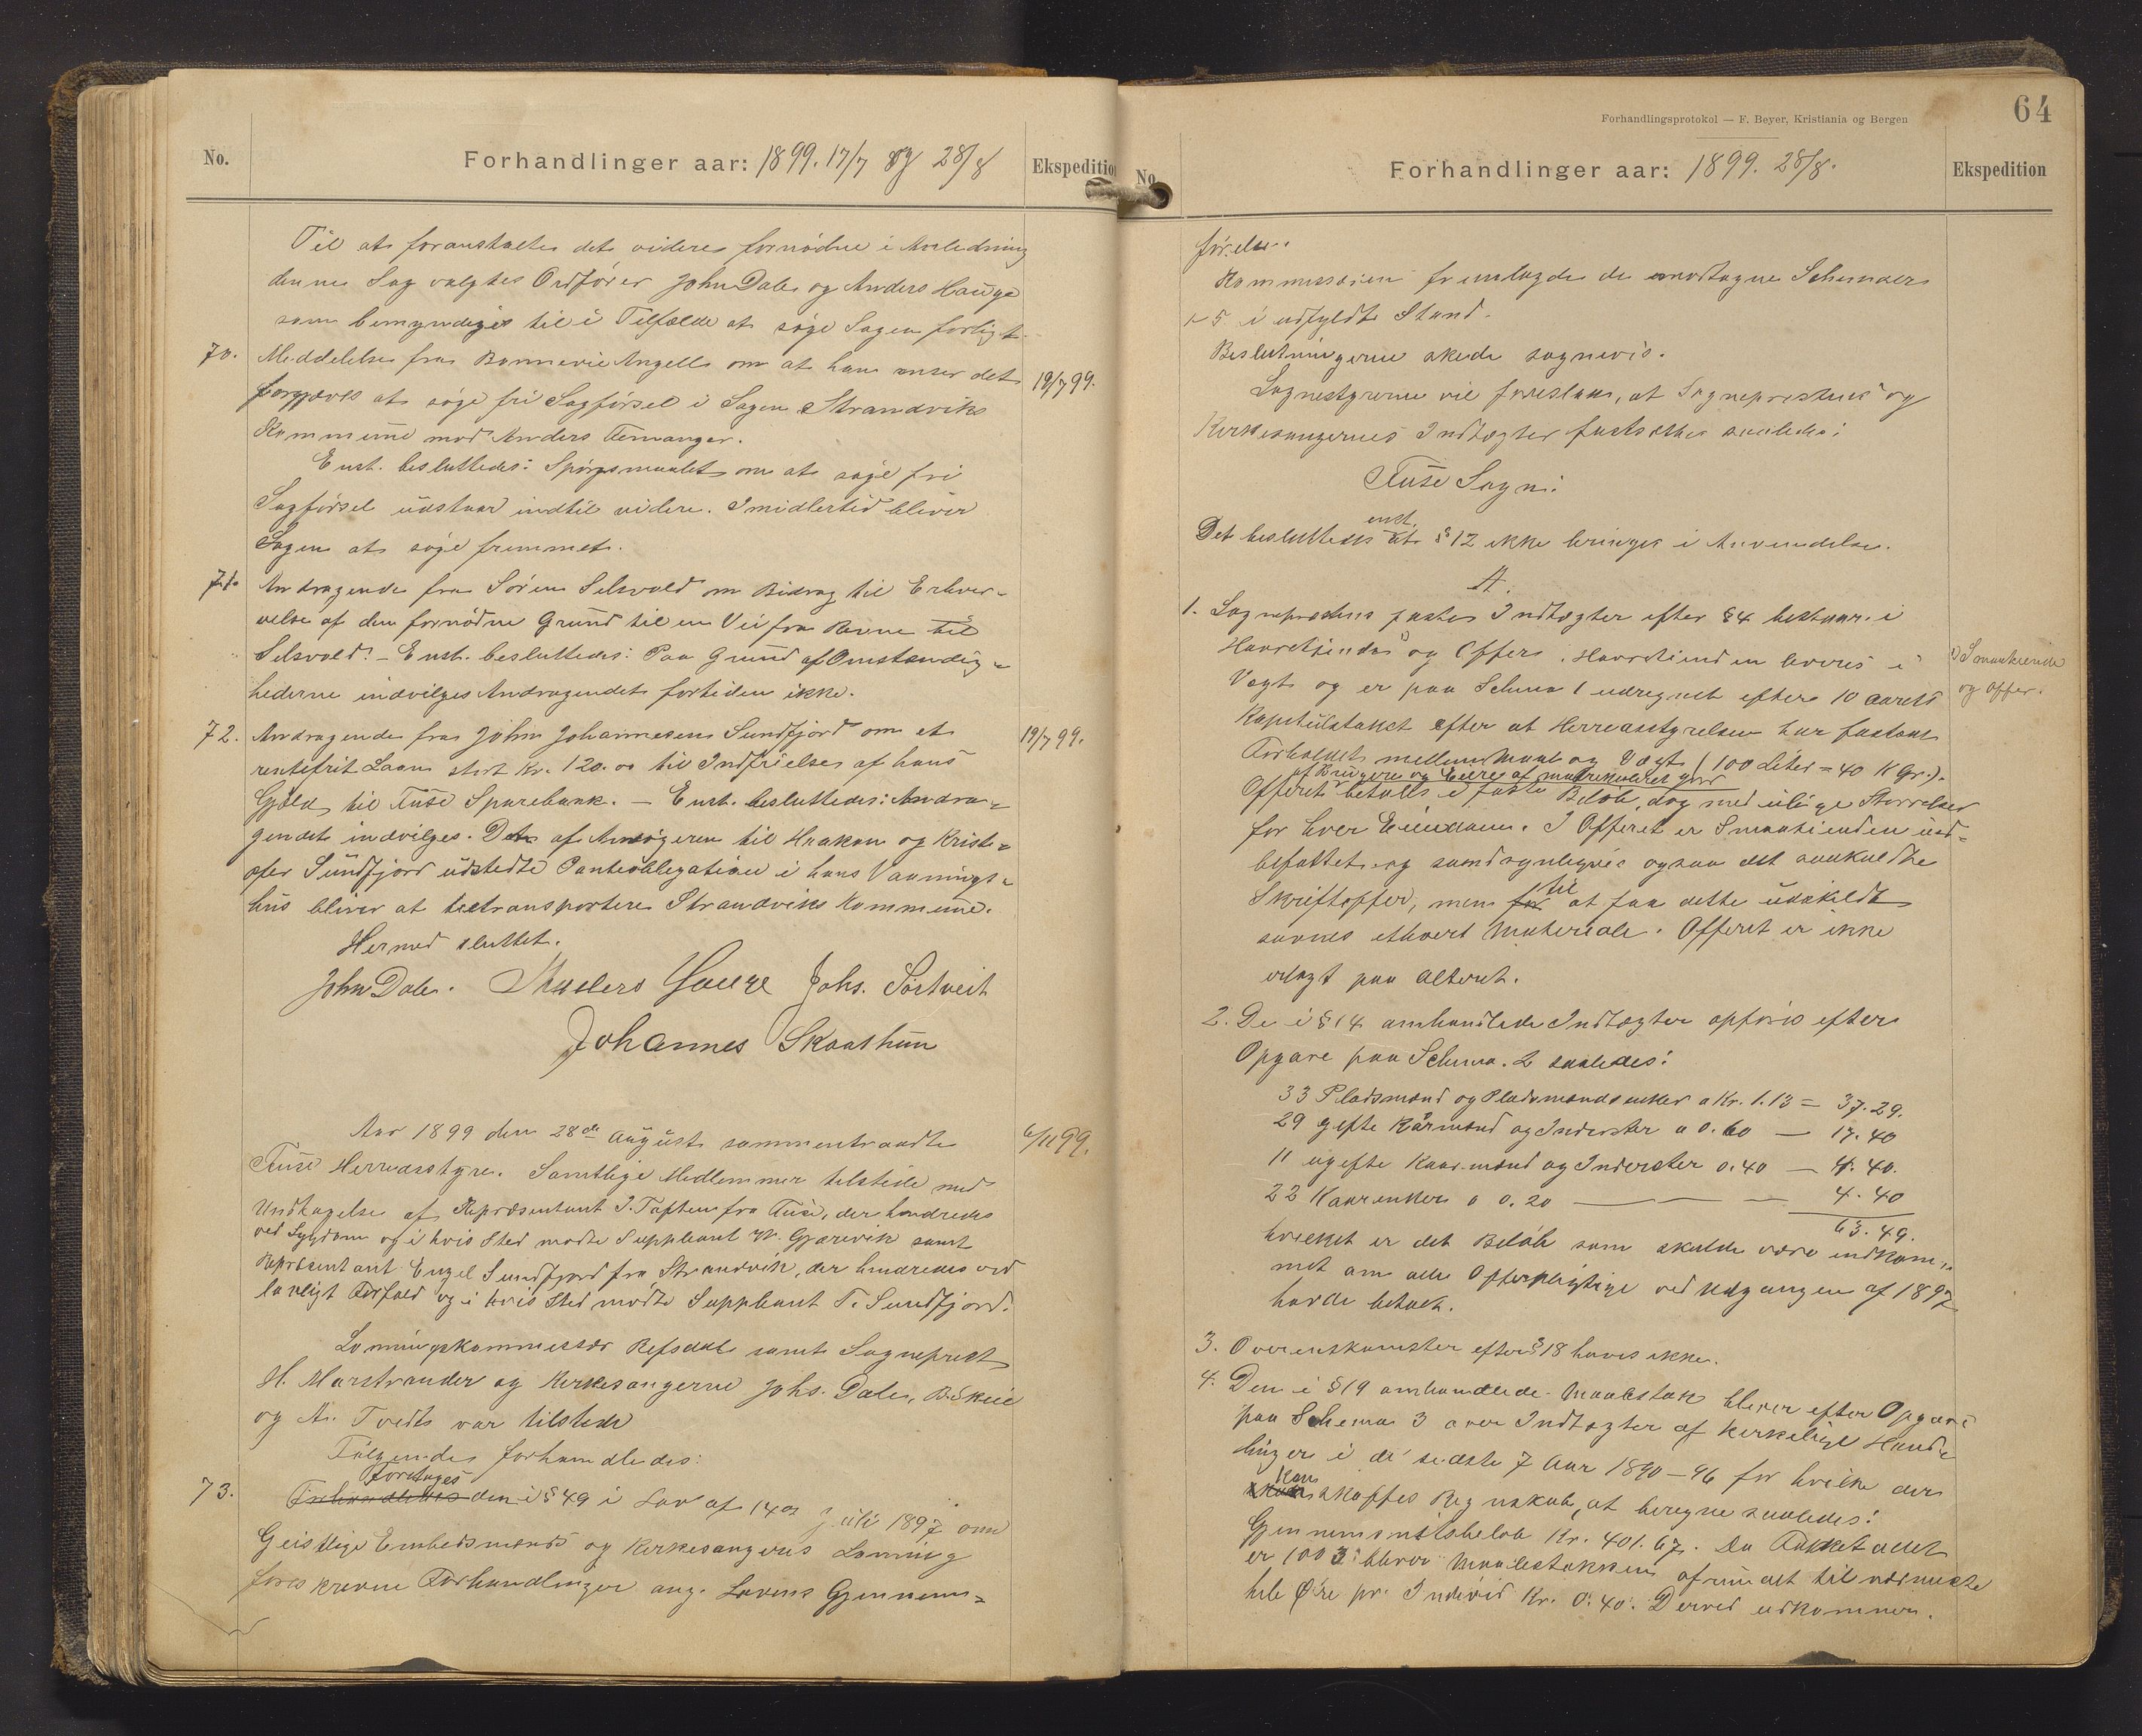 No.
Forhandlinger aar: 1899. 17/7 og 28/8
Ekspedition
Til at foranstalte det videre fornødne i Anledning
denne Sag valgtes Ordfører John Dale og Anders Hauge
som bemyndiges til i Tilfælde at søge Sagen forligt.
70. Meddelelse fra Bonnevie Angell om at han anser det
19/7 99.
forgjæves at søge fri Sagførsel i Sagen Strandviks
Kommune mod Anders Ænanger.
Enst. besluttedes: Spørgsmaalet om at søge fri
Sagførsel udstaar indtil videre. Imidlertid bliver
Sagen at søge fremmet.
71. Andragende fra Søren Selsvold om Bidrag til Erhver-
velse af den fornødne Grund til en Vei fra Ravne til
Selsvold. - Enst. besluttedes: Paa Grund af Omstændig-
hederne indvilges Andragendet fortiden ikke.
72. Andragende fra John Johannesen Sundfjord om et
19/7 99.
rentefrit Laan stort Kr. 120.00 til Indfrielse af hans
Gjæld til Fuse Sparebank. - Enst. besluttedes: Andra-
gendet indvilges. Den af Ansøgeren til Haakon og Kristo-
fer Sundfjord udstedte Panteobligation i hans Vaanings-
hus bliver at tiltransportere Strandviks Kommune.
Hermed sluttet.
John Dale. Anders Hauge Johs. Sørtveit
Johannes Skaathun
Aar 1899 den 28de August sammentraadte
6/11 99.
Fuse Herredsstyre. Samtlige Medlemmer tilstede med
Undtagelse af Repræsentant J. Toften fra Fuse, der hindredes
ved Sygdom og i hvis Sted mødte Suppleant N. Gjørevik samt
Repræsentant Engel Sundfjord fra Strandvik, der hindredes ved
lovligt Forfald og i hvis Sted mødte Suppleant T. Sundfjord.
Lønningskommissær Refsdal samt Sogneprest
H. Marstrander og Kirkesangerne Johs. Dale, B. Skeie
og A. Tvedt var tilstede
Følgende forhandledes:
Foretoges
73. Forhandledes den i § 49 i Lov af 14de Juli 1897 om
Geistlige Embedsmænds og Kirkesangeres Lønning
foreskrevne Forhandlinger ang. Lovens Gjennem-
64
Forhandlingsprotokol — F. Beyer, Kristiania og Bergen
No.
Forhandlinger aar: 1899. 28/8.
Ekspedition
førelse.
Kommissæren fremlagde de modtagne Schemaer
1-5 i udfyldt Stand.
Beslutningerne skede sognevis.
Sognestyrerne vil foreslaa, at Sogneprestens og
Kirkesangernes Indtægter fastsættes saaledes:
Fuse Sogn:
enst.
Det besluttedes at § 12 ikke bringes i Anvendelse.
A.
1. Sogneprestens faste Indtægter efter § 4 bestaar i
Havretiende og Offer. Havretienden leveres i
1) Smaatiende
og Offer.
Vægt og er paa Schema 1 udregnet efter 10 aarets
Kapitelstakst efter at Herredsstyrelsen har fastsat
Forholdet mellem Maal og Vægt (100 Liter = 40 Kgr.).
af Brugere og Eiere af matrikuleret Jord
Offeret betales i faste Beløb, dog med ulige Størrelser
for hver Eiendom. I Offeret er Smaatienden ind-
befattet og sandsynligvis ogsaa det saakaldte
til
Skriftoffer, men for at faa dette udskildt
savnes ethvert Materiale. Offeret er ikke
erlagt paa Alteret.
2. De i § 14 omhandlede Indtægter opføres efter
Opgave paa Schema. 2 saaledes:
33 Pladsmænd og Pladsmandsenker a Kr. 1.13 = 37.29.
29 gifte Kårmænd og Inderster a 0.60 — 17.40
11 ugifte Kaarmænd og Inderster 0.40 — 4.40.
22 Kaarenker a 0.20 — 4.40
63.49.
hvilket er det Beløb som skulde være indkom-
met om alle Offerpligtige ved Udgangen af 1897
havde betalt.
3. Overenskomster efter § 18 haves ikke.
4. Den i § 19 omhandlede Maalestok bliver efter Opgave
paa Schema 3 over Indtægter af kirkelige Hand-
linger i de sidste 7 Aar 1890-96 for hvilke der
kan skaffes Regnskab, at beregne saaledes:
Gjennemsnitsbeløb Kr. 401.67. Da Folketallet
er 1003 bliver Maalestokken afrundet til nærmeste
hele Øre pr. Individ Kr. 0.40. Derved udkommer.